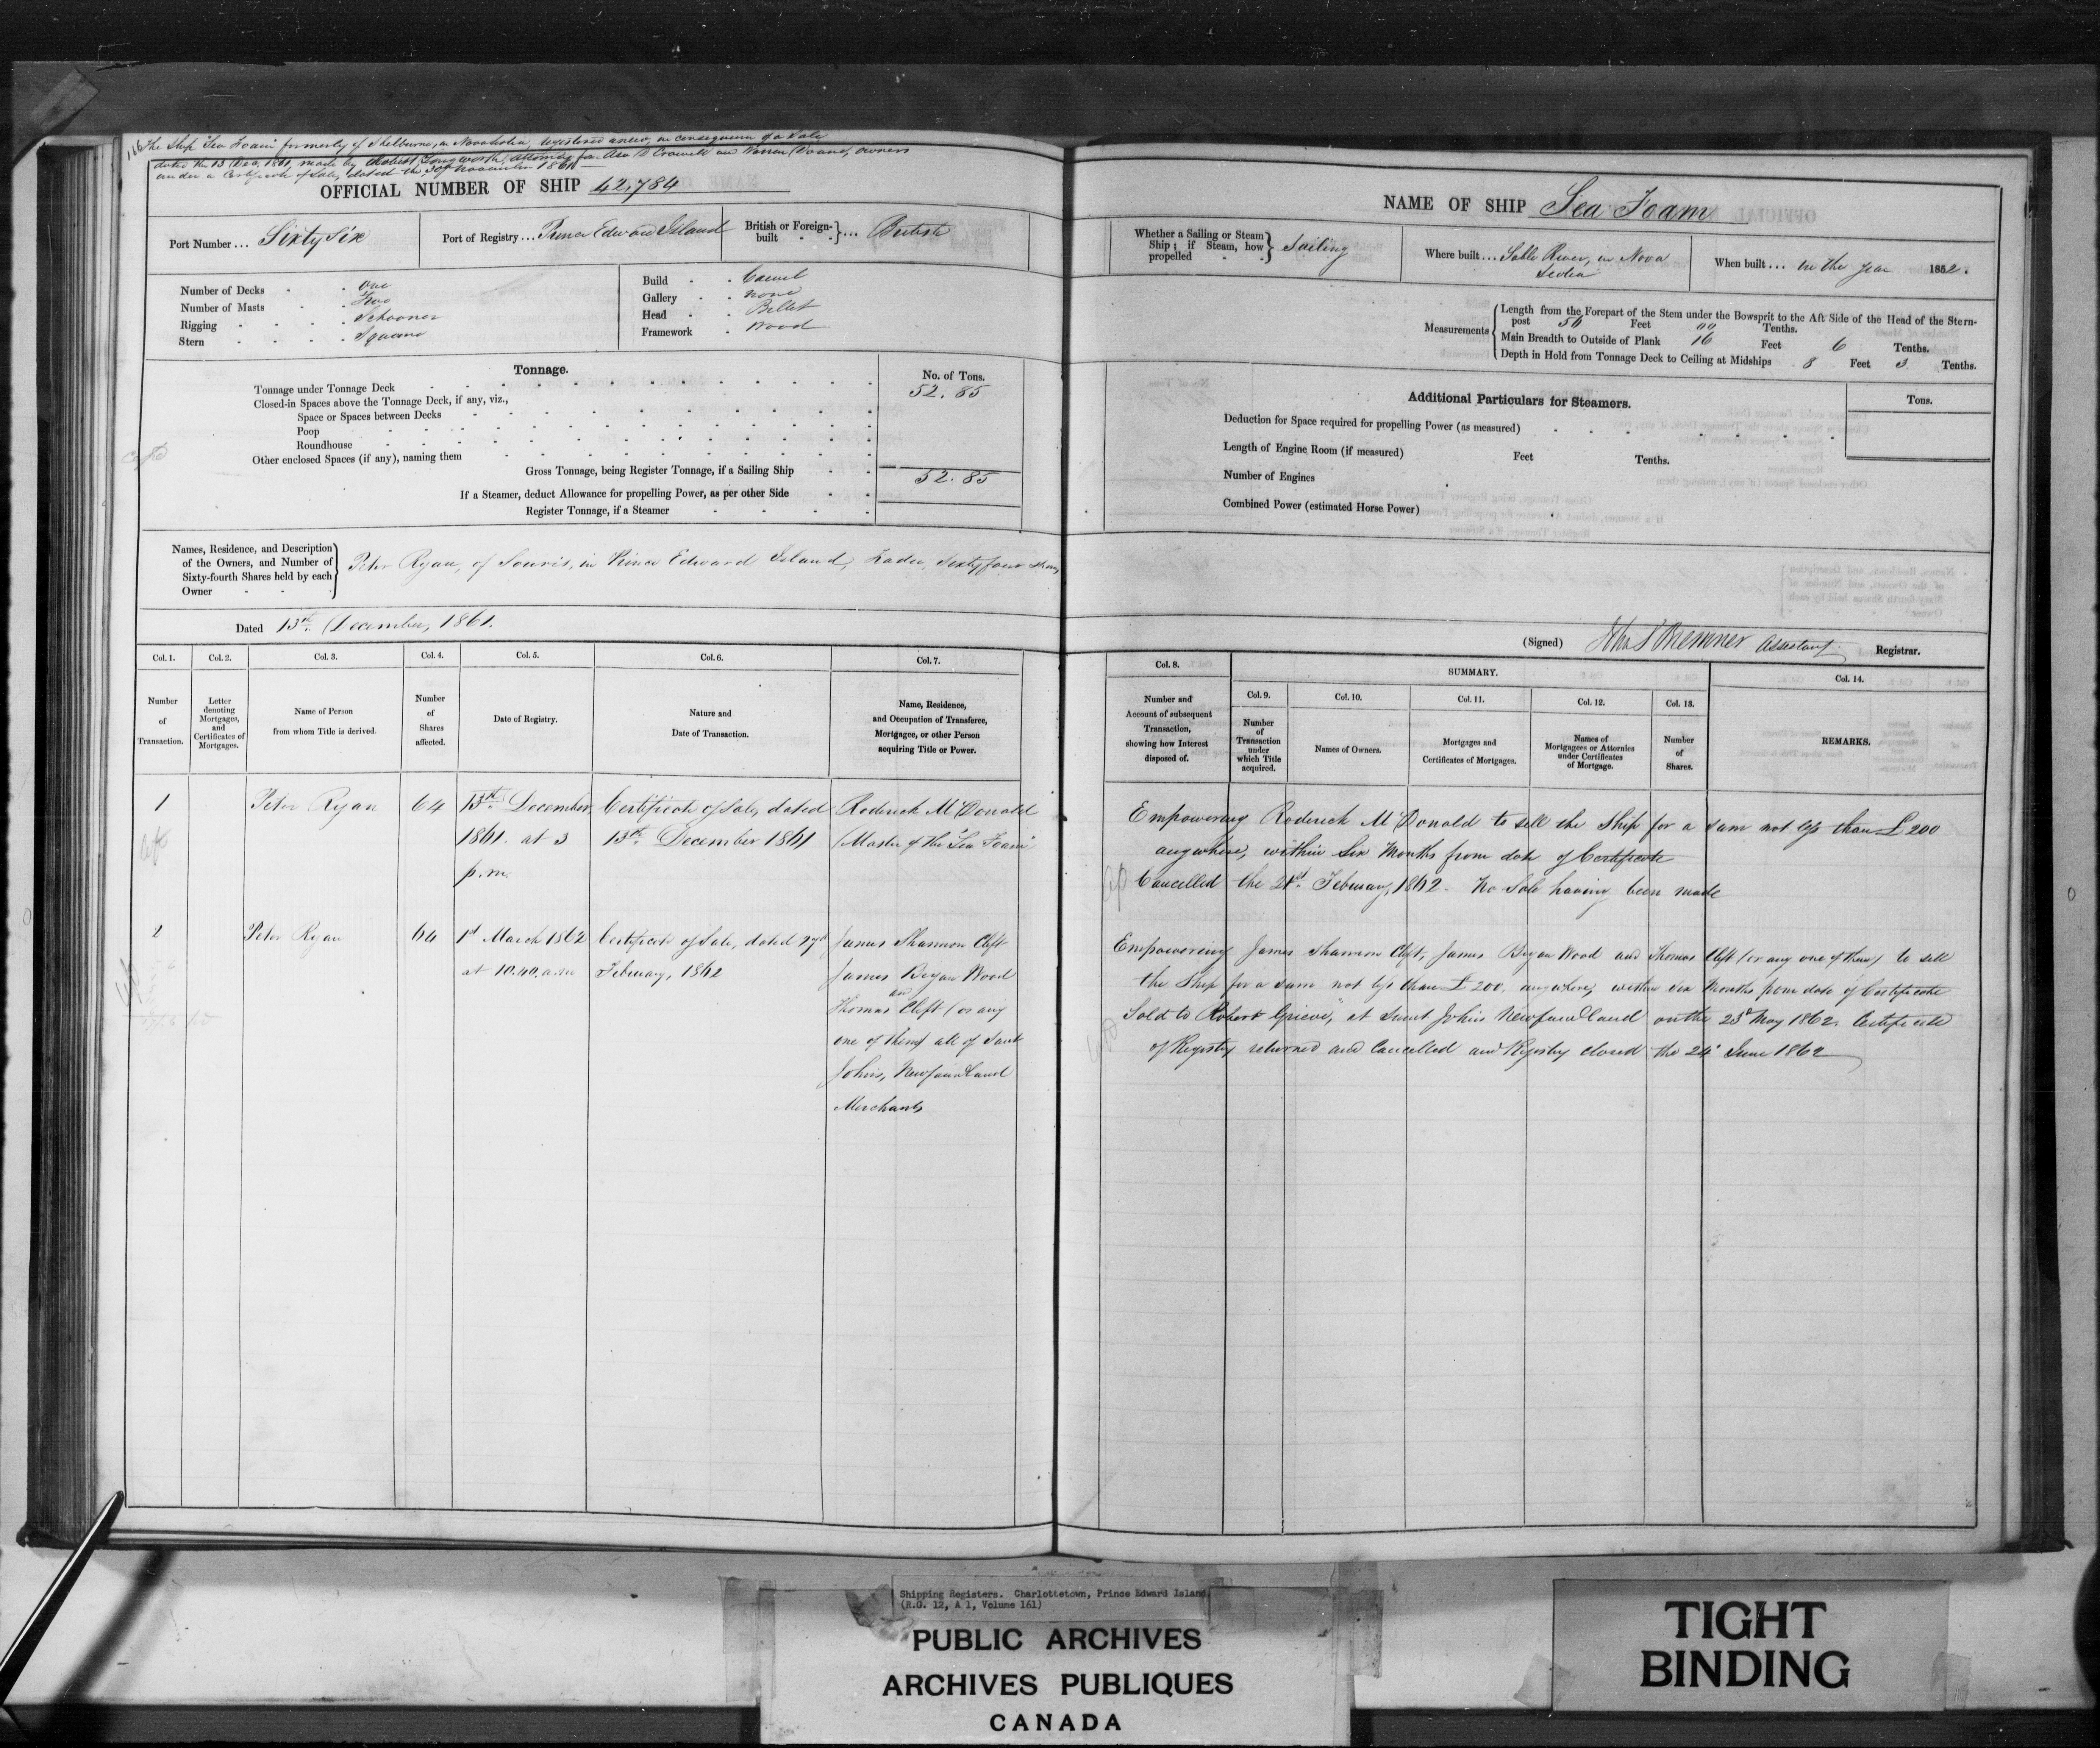 166 The Ship "Sea Foam" formerly of Shelburne, in Nova Scotia, registered anew, in consequence of a Sale,
dated the 13 Dec, 1861, made by Robert Longworth, Attorney for Asa D Crowell and Warren Doane, owners
under a Certificate of Sale, dated the 30th November 1861
OFFICIAL NUMBER OF SHIP 42,784
Port Number... Sixty Six
Port of Registry... Prince Edward Island
British or Foreign-built }... British
Number of Decks - - one
Number of Masts - - Two
Rigging - - Schooner
Stern - - Square
Build - - Carvel
Gallery - - none
Head - - Billet
Framework - wood
Tonnage.
No. of Tons.
Tonnage under Tonnage Deck 52.85
Closed-in Spaces above the Tonnage Deck, if any, viz.,
Space or Spaces between Decks
Poop
Roundhouse
Other enclosed Spaces (if any), naming them
Gross Tonnage, being Register Tonnage, if a Sailing Ship 52.85
If a Steamer, deduct Allowance for propelling Power, as per other Side
Register Tonnage, if a Steamer
Names, Residence, and Description
of the Owners, and Number of
Sixty-fourth Shares held by each
Owner
Peter Ryan, of Souris, in Prince Edward Island, Trader, Sixty four shares
Dated 13th December, 1861.
Col. 1. Col. 2. Col. 3. Col. 4. Col. 5. Col. 6. Col. 7.
Number of Transaction.
Letter denoting Mortgages, and Certificates of Mortgages.
Name of Person from whom Title is derived.
Number of Shares affected.
Date of Registry.
Nature and Date of Transaction.
Name, Residence, and Occupation of Transferee, Mortgagee, or other Person acquiring Title or Power.
1 Peter Ryan 64 13th December, Certificate of Sale, dated Roderick McDonald
1861. at 3 13th December 1861 (Master of the "Sea Foam"
p.m.
2 Peter Ryan 64 1st March 1862 Certificate of Sale, dated 27th James Shannon Clift
at 10.40. a.m February, 1862 James Bryan Wood
and
Thomas Clift (or any
one of them) all of Saint
Johns, Newfoundland
Merchants
NAME OF SHIP Sea Foam
Whether a Sailing or Steam Ship; if Steam, how propelled } Sailing
Where built... Sable River, in Nova
Scotia
When built... in the year 1852.
Measurements
Length from the Forepart of the Stem under the Bowsprit to the Aft Side of the Head of the Stern-
post 56 Feet 00 Tenths.
Main Breadth to Outside of Plank 16 Feet 6 Tenths.
Depth in Hold from Tonnage Deck to Ceiling at Midships 8 Feet 3 Tenths.
Additional Particulars for Steamers.
Tons.
Deduction for Space required for propelling Power (as measured)
Length of Engine Room (if measured) Feet Tenths.
Number of Engines
Combined Power (estimated Horse Power)
(Signed) Bremner Assistant Registrar.
Col. 8. SUMMARY. Col. 14.
Col. 9. Col. 10. Col. 11. Col. 12. Col. 13.
Number and Account of subsequent Transaction, showing how Interest disposed of.
Number of Transaction under which Title acquired.
Names of Owners.
Mortgages and Certificates of Mortgages.
Names of Mortgagees or Attornies under Certificates of Mortgage.
Number of Shares.
REMARKS.
Empowering Roderick McDonald to sell the Ship for a sum not less than £200
anywhere, within Six Months from date of Certificate
Cancelled the 21st February, 1862 - No Sale having been made
Empowering James Shannon Clift, James Bryan Wood and Thomas Clift (or any one of them) to sell
the Ship for a sum not less than £200. anywhere, within six Months from date of Certificate
Sold to Robert Grieve, at Saint Johns Newfoundland on the 23d May 1862. Certificate
of Registry returned and Cancelled and Registry closed the 24th June 1862
Shipping Registers. Charlottetown, Prince Edward Island.
(R.G. 12, A 1, Volume 161)
PUBLIC ARCHIVES
ARCHIVES PUBLIQUES
CANADA
TIGHT
BINDING